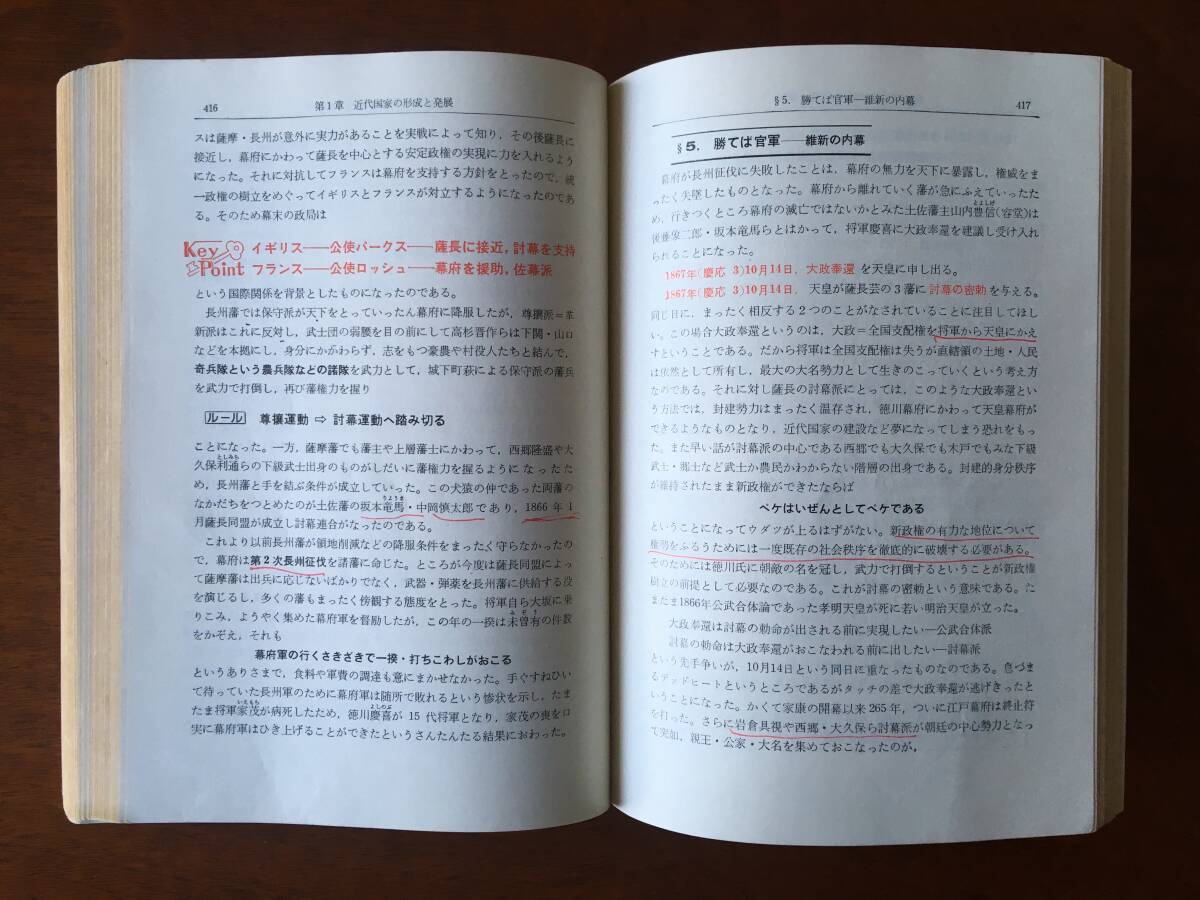 416
第1章 近代国家の形成と発展
スは薩摩・長州が意外に実力があることを実戦によって知り，その後薩長に
接近し，幕府にかわって薩長を中心とする安定政権の実現に力を入れるよう
になった。それに対抗してフランスは幕府を支持する方針をとったので，統
一政権の樹立をめぐってイギリスとフランスが対立するようになったのであ
る。そのため幕末の政局は
Key Point
イギリス——公使パークス——薩長に接近，討幕を支持
フランス——公使ロッシュ——幕府を援助，佐幕派
という国際関係を背景としたものになったのである。
長州藩では保守派が天下をとっていったん幕府に降服したが，尊攘派＝革
新派はこれに反対し，武士団の弱腰を目の前にして高杉晋作らは下関・山口
などを本拠にし，身分にかかわらず，志をもつ豪農や村役人たちと結んで，
奇兵隊という農兵隊などの諸隊を武力として，城下町萩による保守派の藩兵
を武力で打倒し，再び藩権力を握り
ルール 尊攘運動 ⇨ 討幕運動へ踏み切る
ことになった。一方，薩摩藩でも藩主や上層藩士にかわって，西郷隆盛や大
久保利通らの下級武士出身のものがしだいに藩権力を握るようになったた
め，長州藩と手を結ぶ条件が成立していった。この犬猿の仲であった両藩の
なかだちをつとめたのが土佐藩の坂本竜馬・中岡慎太郎であり，1866年1
月薩長同盟が成立し討幕連合がなったのである。
これより以前長州藩が領地削減などの降服条件をまったく守らなかったの
で，幕府は第2次長州征伐を諸藩に命じた。ところが今度は薩長同盟によっ
て薩摩藩は出兵に応じないばかりでなく，武器・弾薬を長州藩に供給する役
を演じるし，多くの藩もまったく傍観する態度をとった。将軍自ら大坂に乗
りこみ，ようやく集めた幕府軍を督励したが，この年の一揆は未曽有の件数
をかぞえ，それも
幕府軍の行くさきざきで一揆・打ちこわしがおこる
というありさまで，食料や軍費の調達も意にまかせなかった。手ぐすねひい
て待っていた長州軍のために幕府軍は随所で敗れるという惨状を示し，たま
たま将軍家茂が病死したため，徳川慶喜が15代将軍となり，家茂の喪を口
実に幕府軍はひき上げることができたというさんたんたる結果におわった。
§5. 勝てば官軍—維新の内幕
417
§5. 勝てば官軍——維新の内幕
幕府が長州征伐に失敗したことは，幕府の無力を天下に暴露し，権威をま
ったく失墜したものとなった。幕府から離れていく藩が急にふえていったた
め，行きつくところ幕府の滅亡ではないかとみた土佐藩主山内豊信(容堂)は
後藤象二郎・坂本竜馬らとはかって，将軍慶喜に大政奉還を建議し受け入れ
られることになった。
1867年(慶応 3)10月14日，大政奉還 を天皇に申し出る。
1867年(慶応 3)10月14日，天皇が薩長芸の3藩に討幕の密勅を与える。
同じ日に，まったく相反する2つのことがなされていることに注目してほし
い。この場合大政奉還というのは，大政＝全国支配権を将軍から天皇にかえ
すということである。だから将軍は全国支配権は失うが直轄領の土地・人民
は依然として所有し，最大の大名勢力として生きのこっていくという考え方
なのである。それに対し薩長の討幕派にとっては，このような大政奉還とい
う方法では，封建勢力はまったく温存され，徳川幕府にかわって天皇幕府が
できるようなものとなり，近代国家の建設など夢になってしまう恐れをもっ
た。また早い話が討幕派の中心である西郷でも大久保でも木戸でもみな下級
武士・郷士など武士か農民かわからない階層の出身である。封建的身分秩序
が維持されたまま新政権ができたならば
ペケはいぜんとしてペケである
ということになってウダツが上るはずがない。新政権の有力な地位について
権勢をふるうためには一度既存の社会秩序を徹底的に破壊する必要がある。
そのためには徳川氏に朝敵の名を冠し，武力で打倒するということが新政権
樹立の前提として必要なのである。これが討幕の密勅という意味である。た
またま1866年公武合体論であった孝明天皇が死に若い明治天皇が立った。
大政奉還は討幕の勅命が出される前に実現したい—公武合体派
討幕の勅命は大政奉還がおこなわれる前に出したい—討幕派
という先手争いが，10月14日という同日に重なったものなのである。息づま
るデッドヒートというところであるがタッチの差で大政奉還が逃げきったと
いうことになった。かくて家康の開幕以来265年，ついに江戸幕府は終止符
を打った。さらに岩倉具視や西郷・大久保ら討幕派が朝廷の中心勢力となっ
て突如，親王・公家・大名を集めておこなったのが，